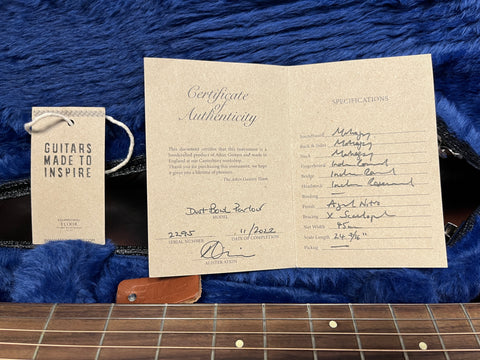 GUITARS
MADE TO
INSPIRE
ELIXIR
Certificate
of
Authenticity
This document certifies that this instrument is a
handcrafted product of Atkin Guitars and made in
England at our Canterbury workshop.
If you have the pleasure of purchasing this instrument, we hope
it gives you a lifetime of pleasure.
- The Atkin Guitars Team
Dust Bowl Parlour
MODEL
2295 11/2022
SERIAL NUMBER DATE OF COMPLETION
ALISTER ATKIN
SPECIFICATIONS
Soundboard Mahogany
Back & Sides Mahogany
Neck Mahogany
Fingerboard Indian Rosewood
Bridge Indian Rosewood
Headstock Indian Rosewood
Binding —
Finish Aged Nitro
Bracing X Scalloped
Nut Width 45mm
Scale Length 24 3/4"
Pickup —